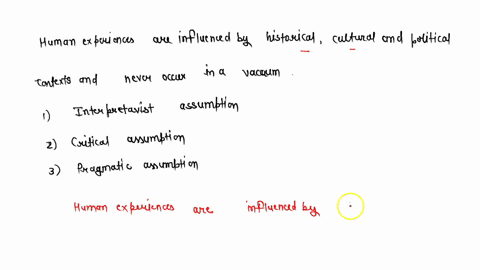 Human experiences are influenced by historical, cultural and political
contexts and never occur in a vacuum.
1) Interpretavist assumption
2) Critical assumption
3) Pragmatic assumption
Human experiences are influenced by